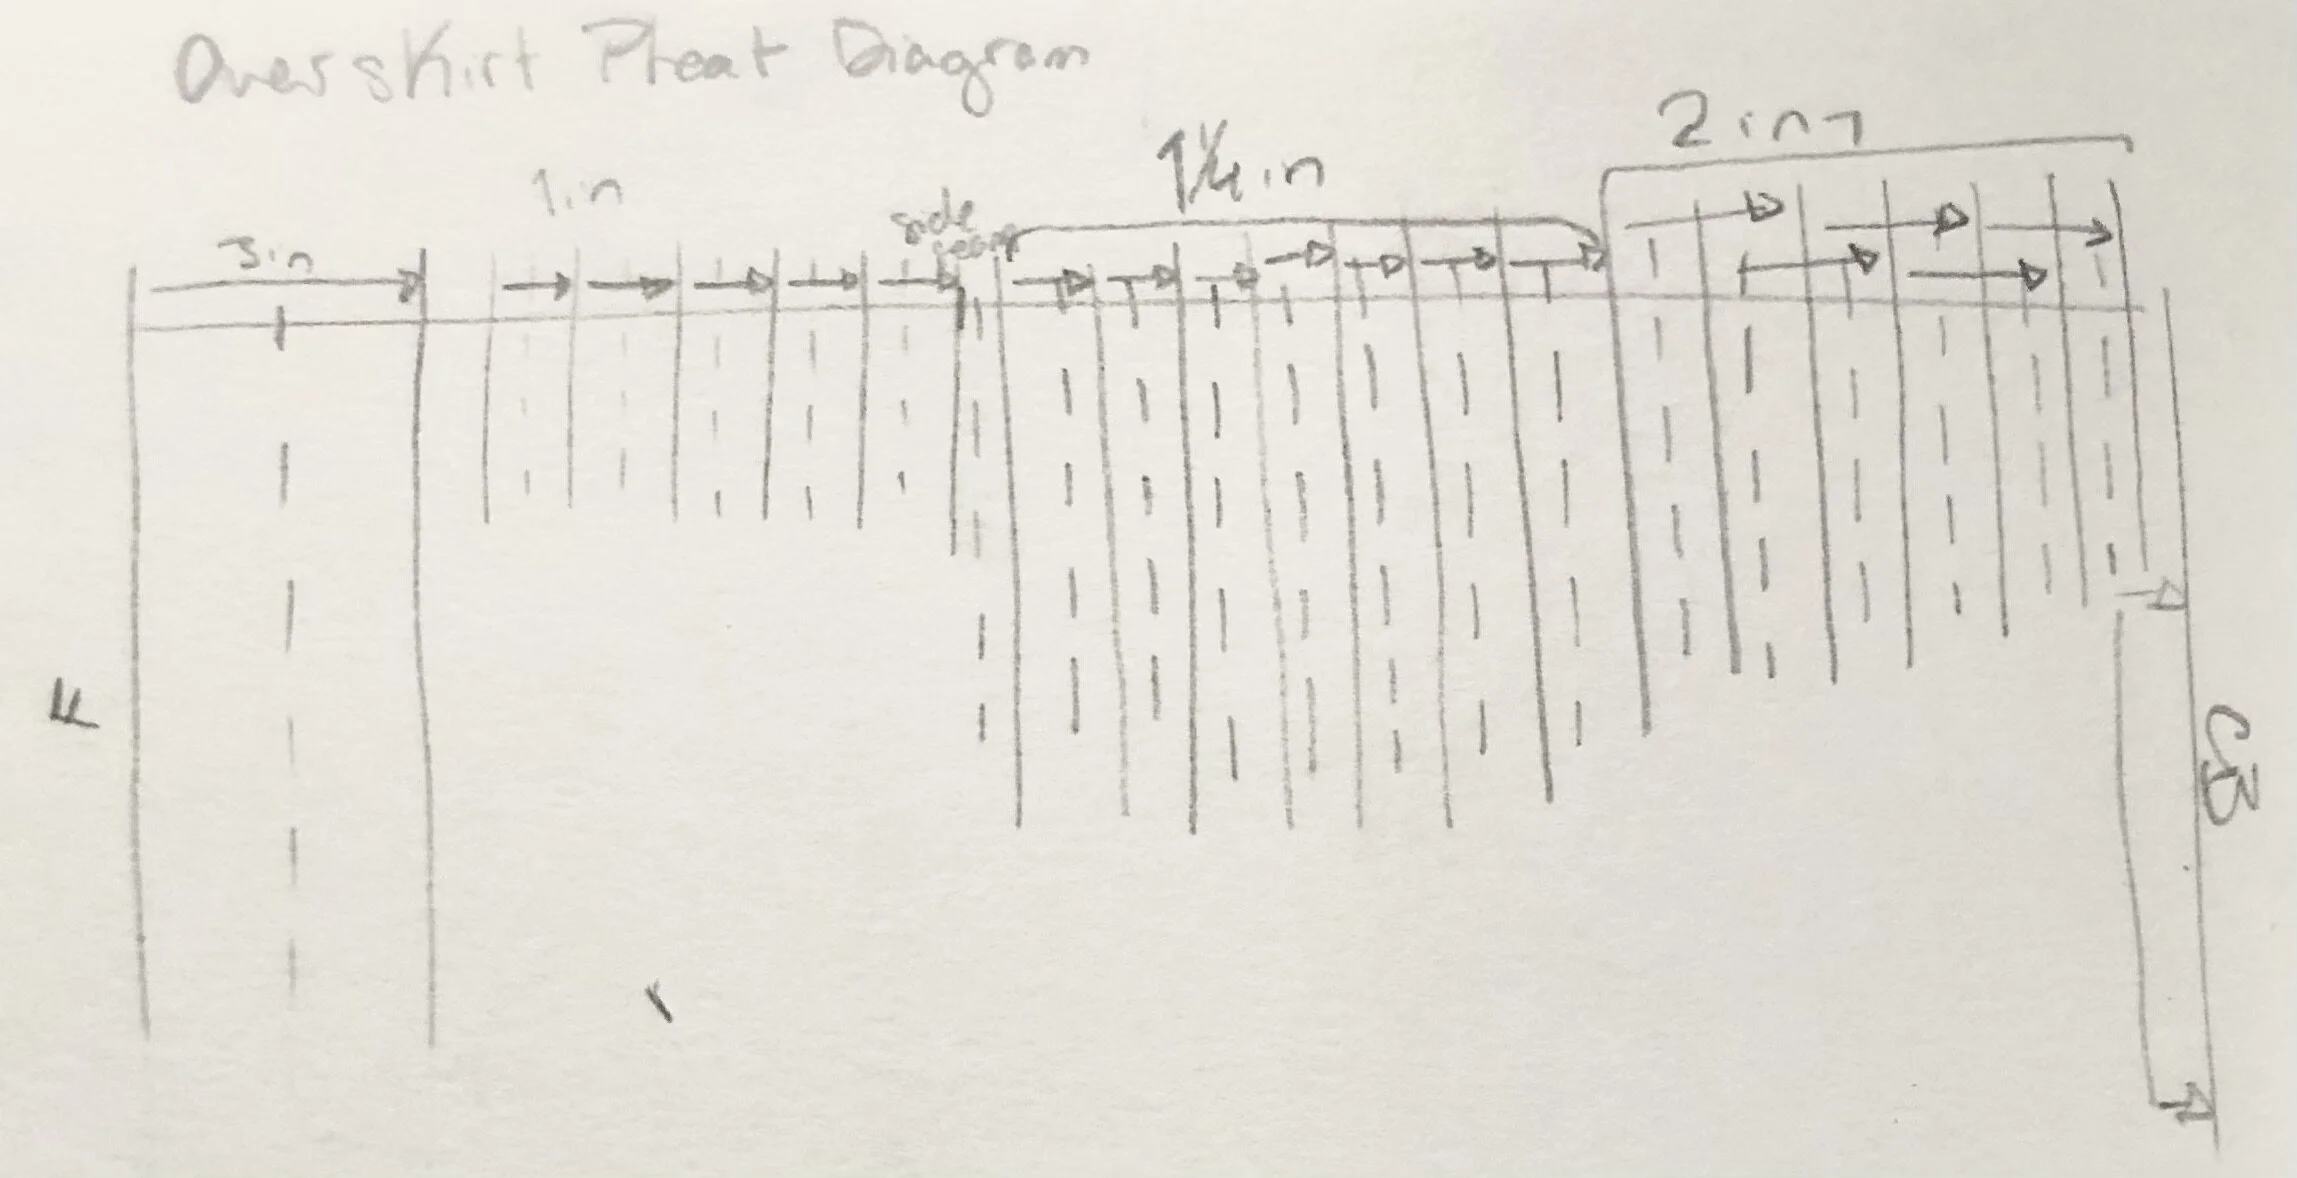 Overskirt Pleat Diagram
2 in
1¼ in
1 in
side
seam
3 in
F
CB